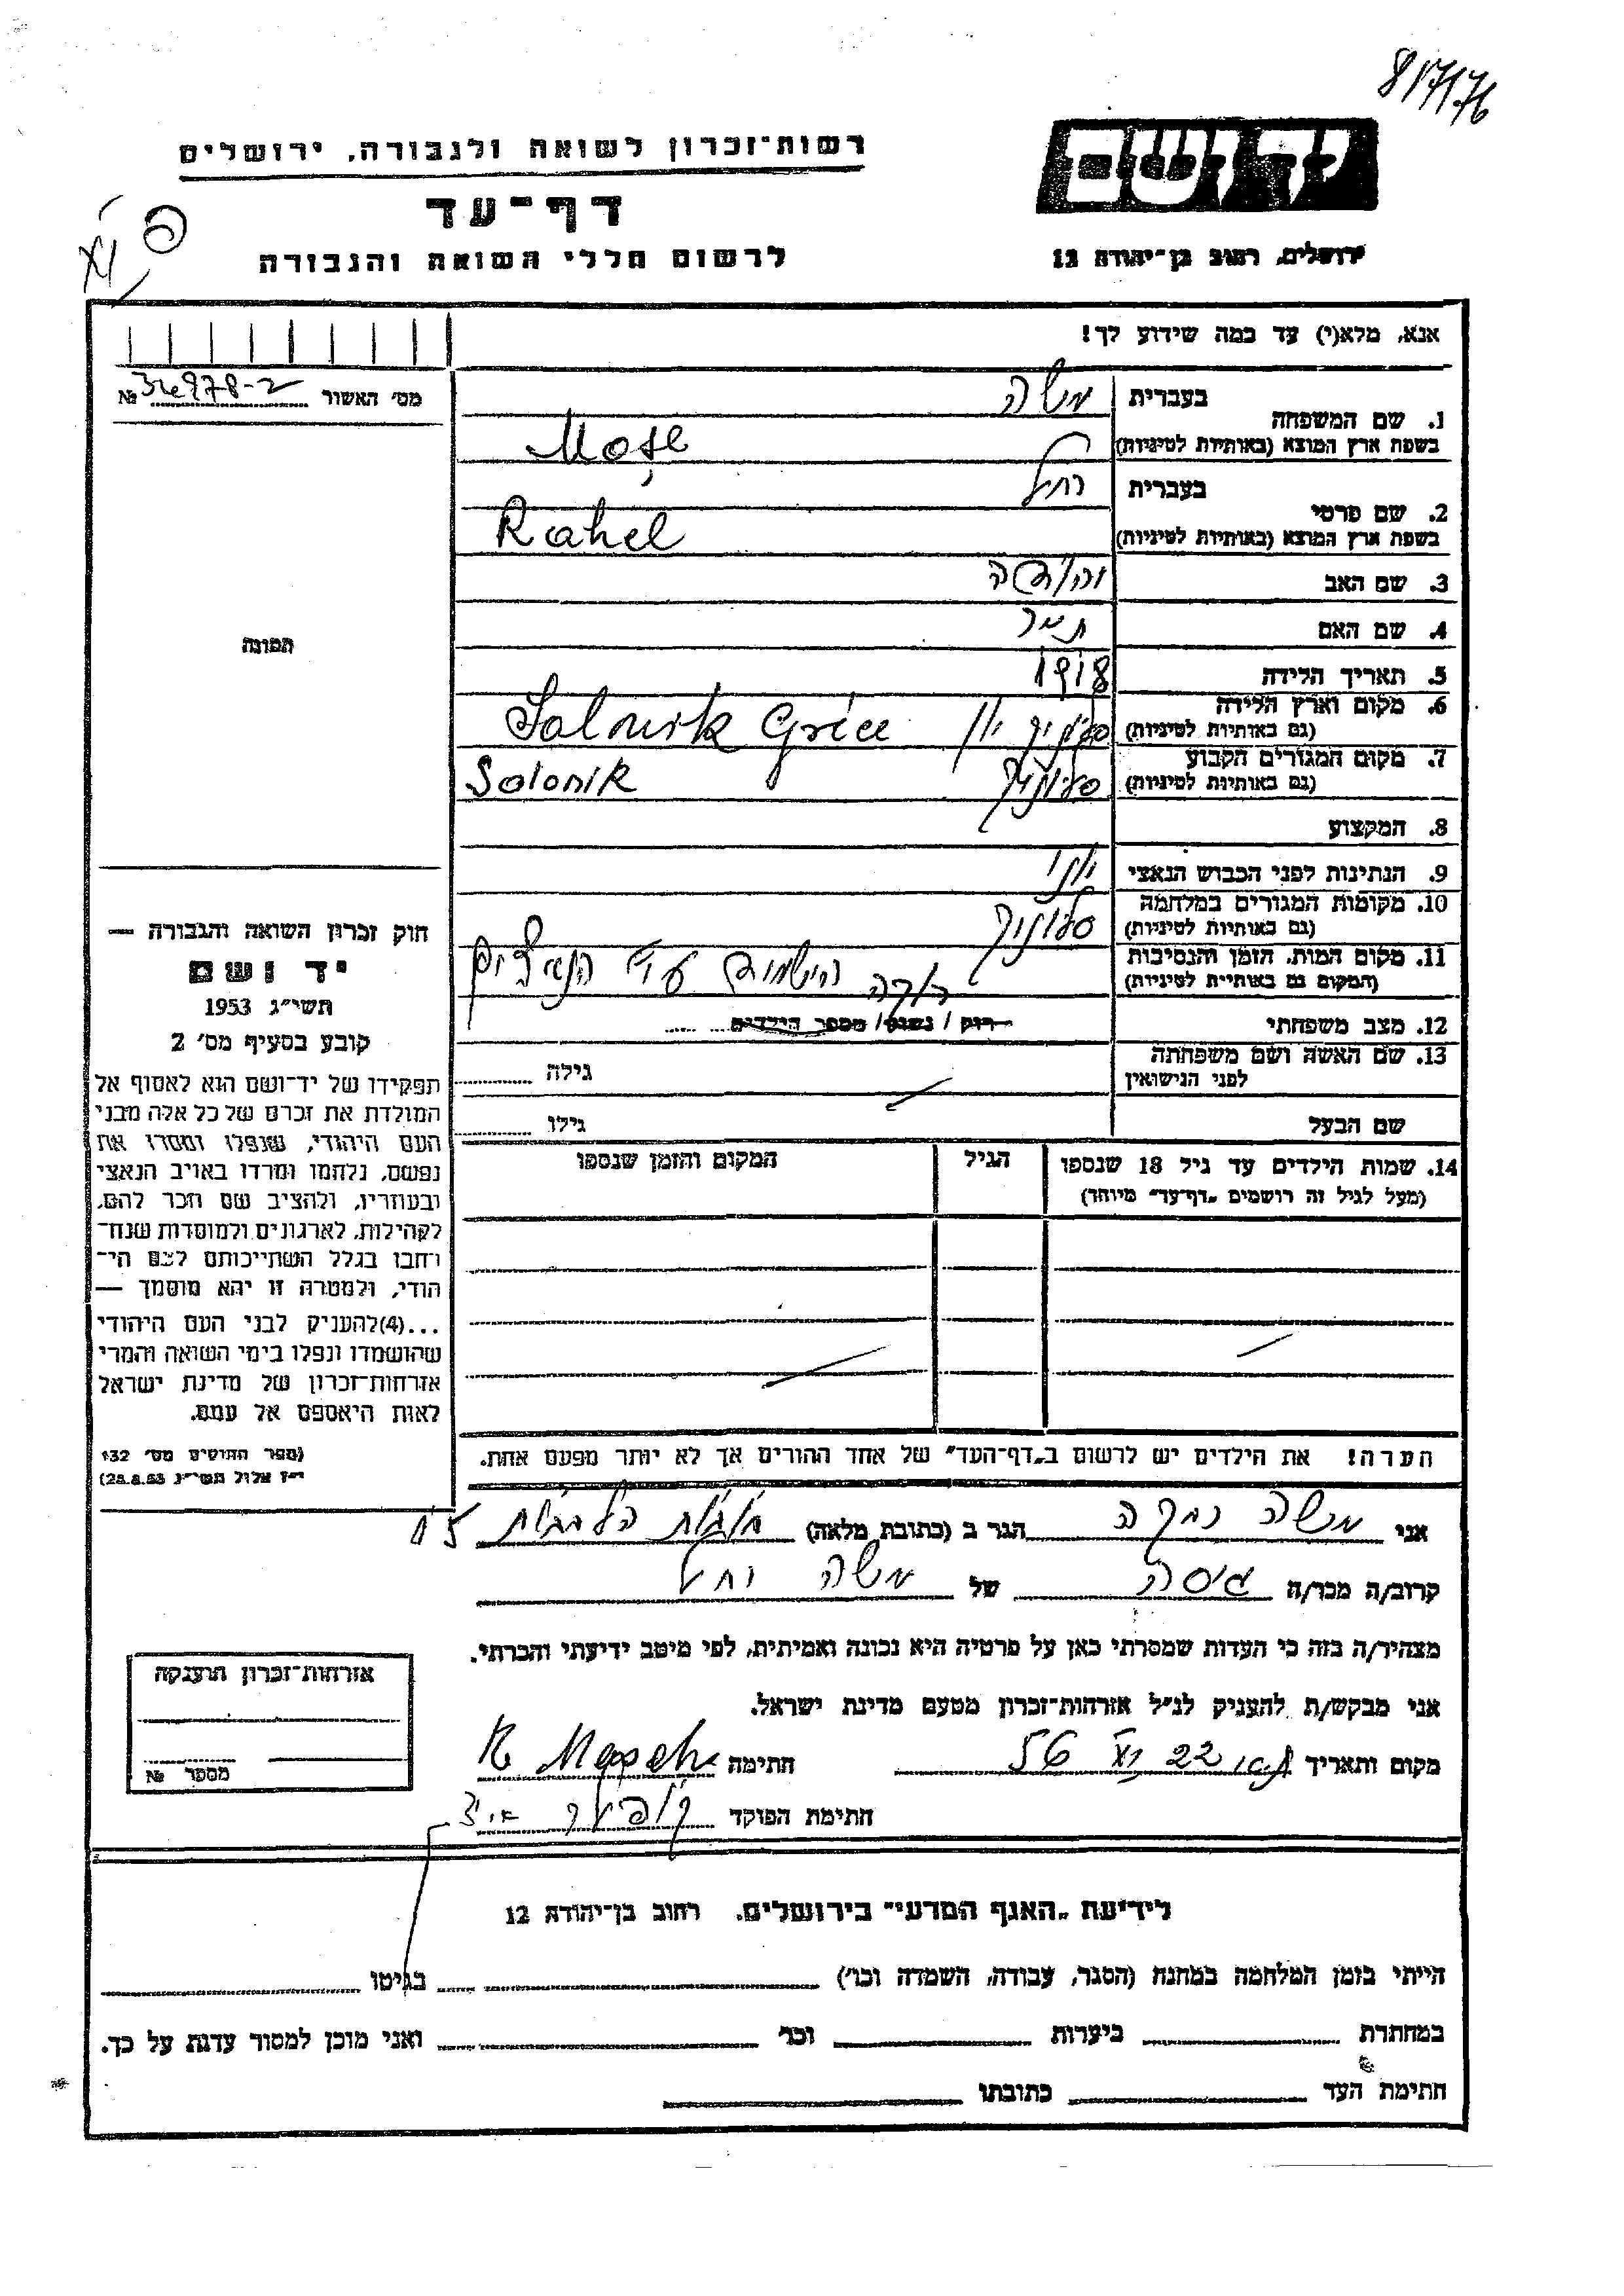 817176
יד ושם
רשות־זכרון לשואה ולגבורה, ירושלים
דף־עד
ירושלים, רחוב בן־יהודה 12
לרשום חללי השואה והגבורה
אנא, מלא(י) עד כמה שידוע לך!
מס׳ האשור №
1. שם המשפחה בעברית משה
בשפת ארץ המוצא (באותיות לטיניות) Moşe
2. שם פרטי בעברית רחל
בשפת ארץ המוצא (באותיות לטיניות) Rahel
3. שם האב
4. שם האם תמר
5. תאריך הלידה 1918
6. מקום וארץ הלידה (גם באותיות לטיניות) סלוניק יון Salonik Grèce
7. מקום המגורים הקבוע (גם באותיות לטיניות) סלוניק Salonik
8. המקצוע
9. הנתינות לפני הכבוש הנאצי יוני
10. מקומות המגורים במלחמה (גם באותיות לטיניות) סלוניק
11. מקום המות, הזמן והנסיבות (המקום גם באותיות לטיניות) ע״י הנאצים
12. מצב משפחתי רוק / נשוי / מספר הילדים רוקה
13. שם האשה ושם משפחתה לפני הנישואין גילה
שם הבעל גילו
14. שמות הילדים עד גיל 18 שנספו הגיל המקום והזמן שנספו
(מעל לגיל זה רושמים „דף־עד״ מיוחד)
הערה! את הילדים יש לרשום ב„דף־העד״ של אחד ההורים אך לא יותר מפעם אחת.
תמונה
חוק זכרון השואה והגבורה —
יד ושם
תשי״ג 1953
קובע בסעיף מס׳ 2
תפקידו של יד־ושם הוא לאסוף אל
המולדת את זכרם של כל אלה מבני
העם היהודי, שנפלו ומסרו את
נפשם, נלחמו ומרדו באויב הנאצי
ובעוזריו, ולהציב שם וזכר להם,
לקהילות, לארגונים ולמוסדות שנח־
רחבו בגלל השתייכותם לעם הי־
הודי, ולמטרה זו יהא מוסמך —
...(4)להעניק לבני העם היהודי
שהושמדו ונפלו בימי השואה והמרי
אזרחות־זכרון של מדינת ישראל
לאות היאספם אל עמם.
(ספר החוקים מס׳ 132
י״ז אלול תשי״ג 28.8.53)
אני משה רבקה הגר ב (כתובת מלאה)
קרוב/ה מכר/ה גיסה של משה רחל
מצהיר/ה בזה כי העדות שמסרתי כאן על פרטיה היא נכונה ואמיתית, לפי מיטב ידיעתי והכרתי.
אני מבקש/ת להעניק לנ״ל אזרחות־זכרון מטעם מדינת ישראל.
מקום ותאריך 22 XI 56 חתימה
חתימת הפוקד
אזרחות־זכרון הוענקה
מספר №
לידיעת „האגף המדעי״ בירושלים, רחוב בן־יהודה 12
הייתי בזמן המלחמה במחנה (הסגר, עבודה, השמדה וכו׳) בגיטו
במחתרת ביערות וכו׳ ואני מוכן למסור עדות על כך.
חתימת העד כתובתו